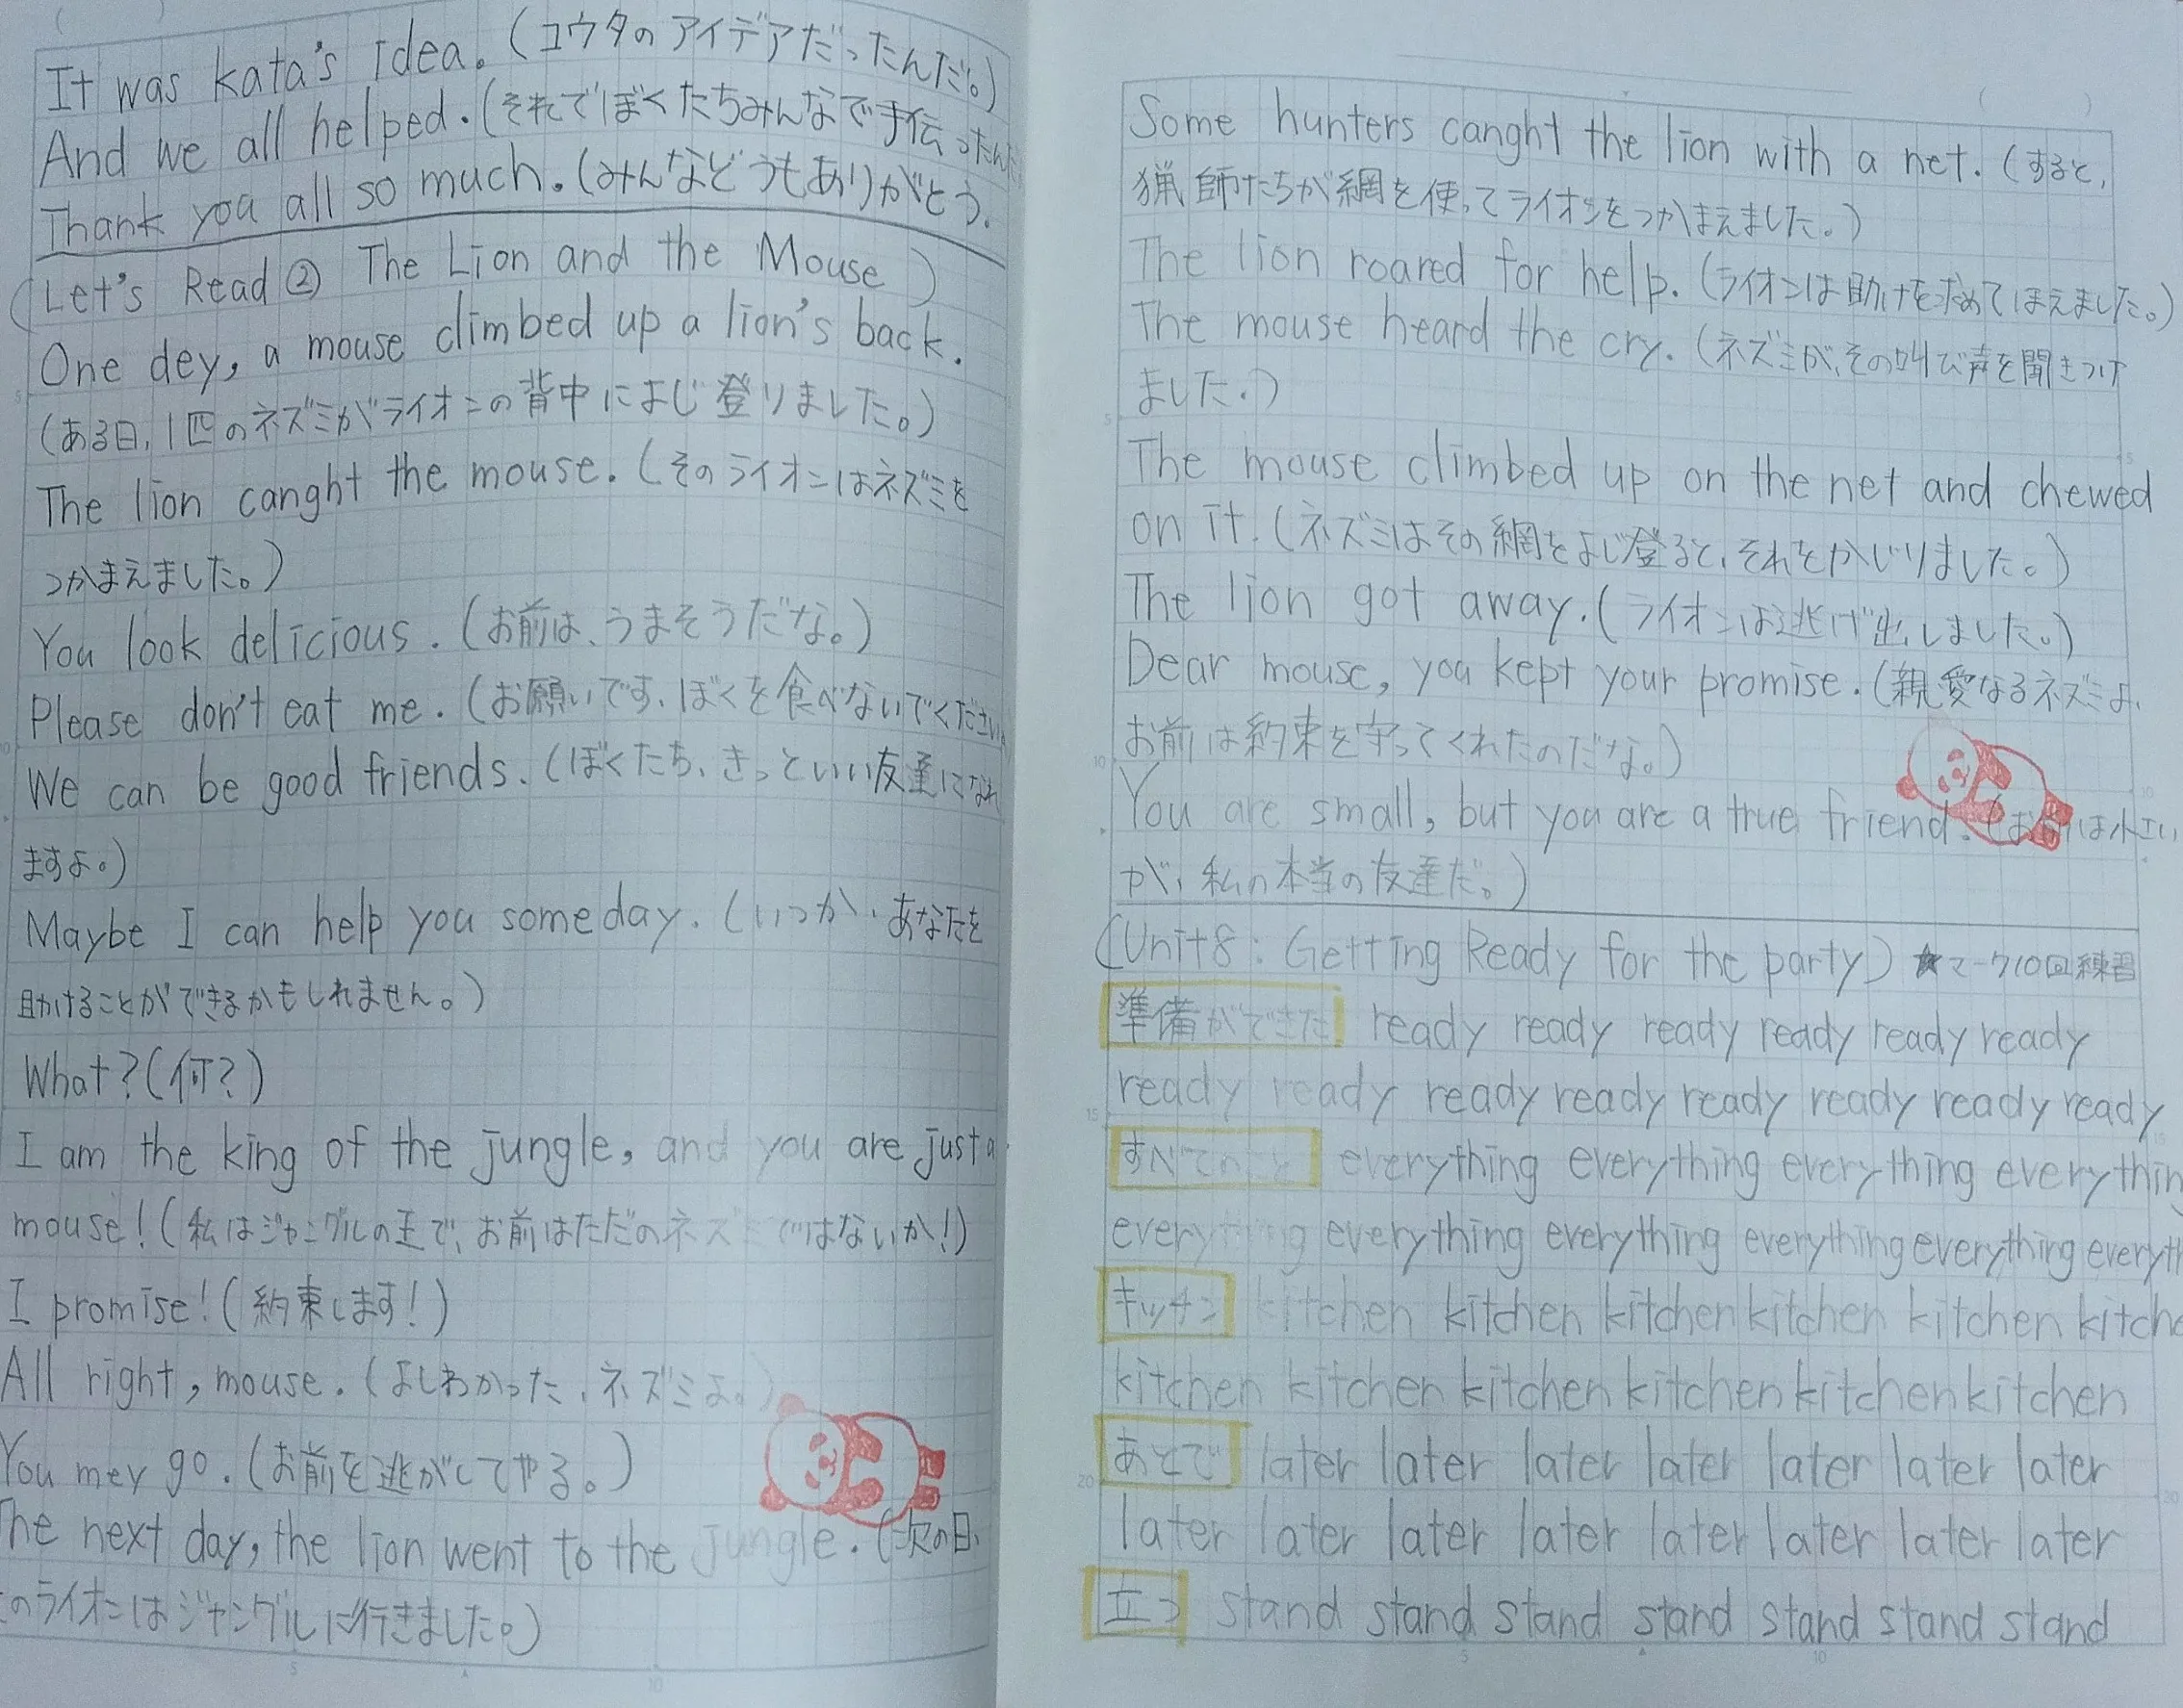 It was kata's idea. (ユウタのアイデアだったんだ。)
And we all helped. (それでぼくたちみんなで手伝ったんだ
Thank you all so much. (みんなどうもありがとう.
(Let's Read② The Lion and the Mouse)
One dey, a mouse climbed up a lion's back.
(ある日, 1匹のネズミがライオンの背中によじ登りました。)
The lion canght the mouse. (そのライオンはネズミを
つかまえました。)
You look delicious. (お前は、うまそうだな。)
Please don't eat me. (お願いです、ぼくを食べないでください。
We can be good friends. (ぼくたち、きっといい友達になれ
ますよ。)
Maybe I can help you someday. (いつか、あなたを
助けることができるかもしれません。)
What? (何?)
I am the king of the jungle, and you are just a
mouse! (私はジャングルの王で、お前はただのネズミではないか!)
I promise! (約束します!)
All right, mouse. (よしわかった、ネズミよ。)
You mey go. (お前を逃がしてやる。)
The next day, the lion went to the jungle. (次の日、
そのライオンはジャングルに行きました。)
Some hunters canght the lion with a net. (すると,
猟師たちが網を使ってライオンをつかまえました。)
The lion roared for help. (ライオンは助けを求めてほえました。)
The mouse heard the cry. (ネズミが、その叫び声を聞きつけ
ました.)
The mouse climbed up on the net and chewed
on it. (ネズミはその網をよじ登ると、それをかじりました。)
The lion got away. (ライオンは逃げ出しました。)
Dear mouse, you kept your promise. (親愛なるネズミよ、
お前は約束を守ってくれたのだな。)
You are small, but you are a true friend. (お前は小さい
が、私の本当の友達だ。)
(Unit8: Getting Ready for the party) ★マーク10回練習
準備ができた ready ready ready ready ready ready
ready ready ready ready ready ready ready ready
すべてのこと everything everything everything everythin
everything everything everything everything everything everyth
キッチン kitchen kitchen kitchen kitchen kitchen kitche
kitchen kitchen kitchen kitchen kitchen kitchen
あとで later later later later later later later
later later later later later later later later
立つ stand stand stand stand stand stand stand